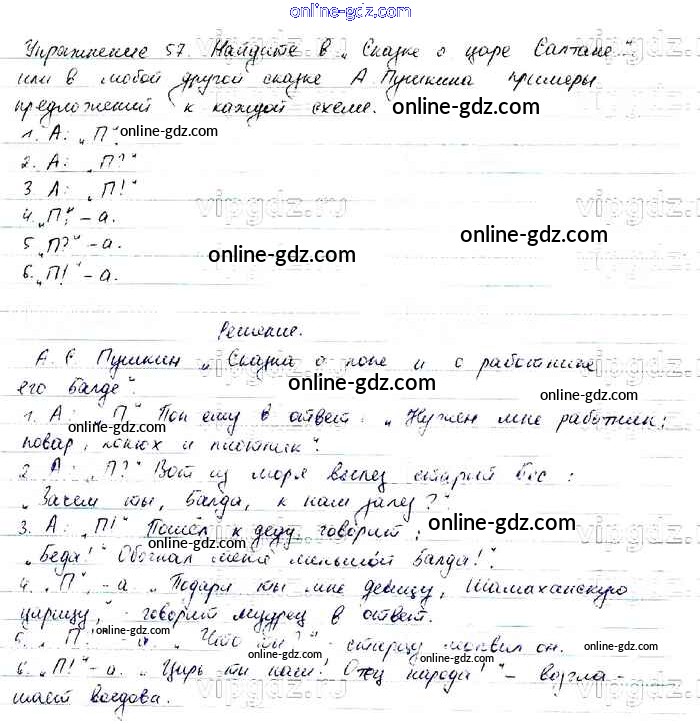 online-gdz.com
Упражнение 57. Найдите в „Сказке о царе Салтане"
или в любой другой сказке А Пушкина примеры
предложений к каждой схеме. online-gdz.com
1. А: „П". online-gdz.com
2. А: „П?"
3 А: „П!"
vipgdz.ru
4. „П", – а. vipgdz.ru
5 „П?" – а. online-gdz.com
online-gdz.com
6. „П!" – а.
Решение.
А. С Пушкин „Сказка о попе и о работнике
его Балде". online-gdz.com
online-gdz.com
1. А: „П" Поп ему в ответ: „Нужен мне работник:
online-gdz.com
повар, конюх и плотник".
vipgdz.ru
2 А: „П?" Вот из моря вылез старый Бес:
„Зачем ты, Балда, к нам залез?" online-gdz.com
3. А: „П!" Пошел к деду, говорит: online-gdz.com
„Беда! Обогнал меня меньшой Балда!".
online-gdz.com
vipgdz.ru
4. „П", – а „Подари ты мне девицу, Шамаханскую
царицу," – говорит мудрец в ответ.
online-gdz.com
5. „П?" – а. „Что ты?" – старцу молвил он. online-gdz.com
online-gdz.com
6. „П!" – а. „Царь ты наш! Отец народа!" – возгла-
шает воевода.
vipgdz.ru